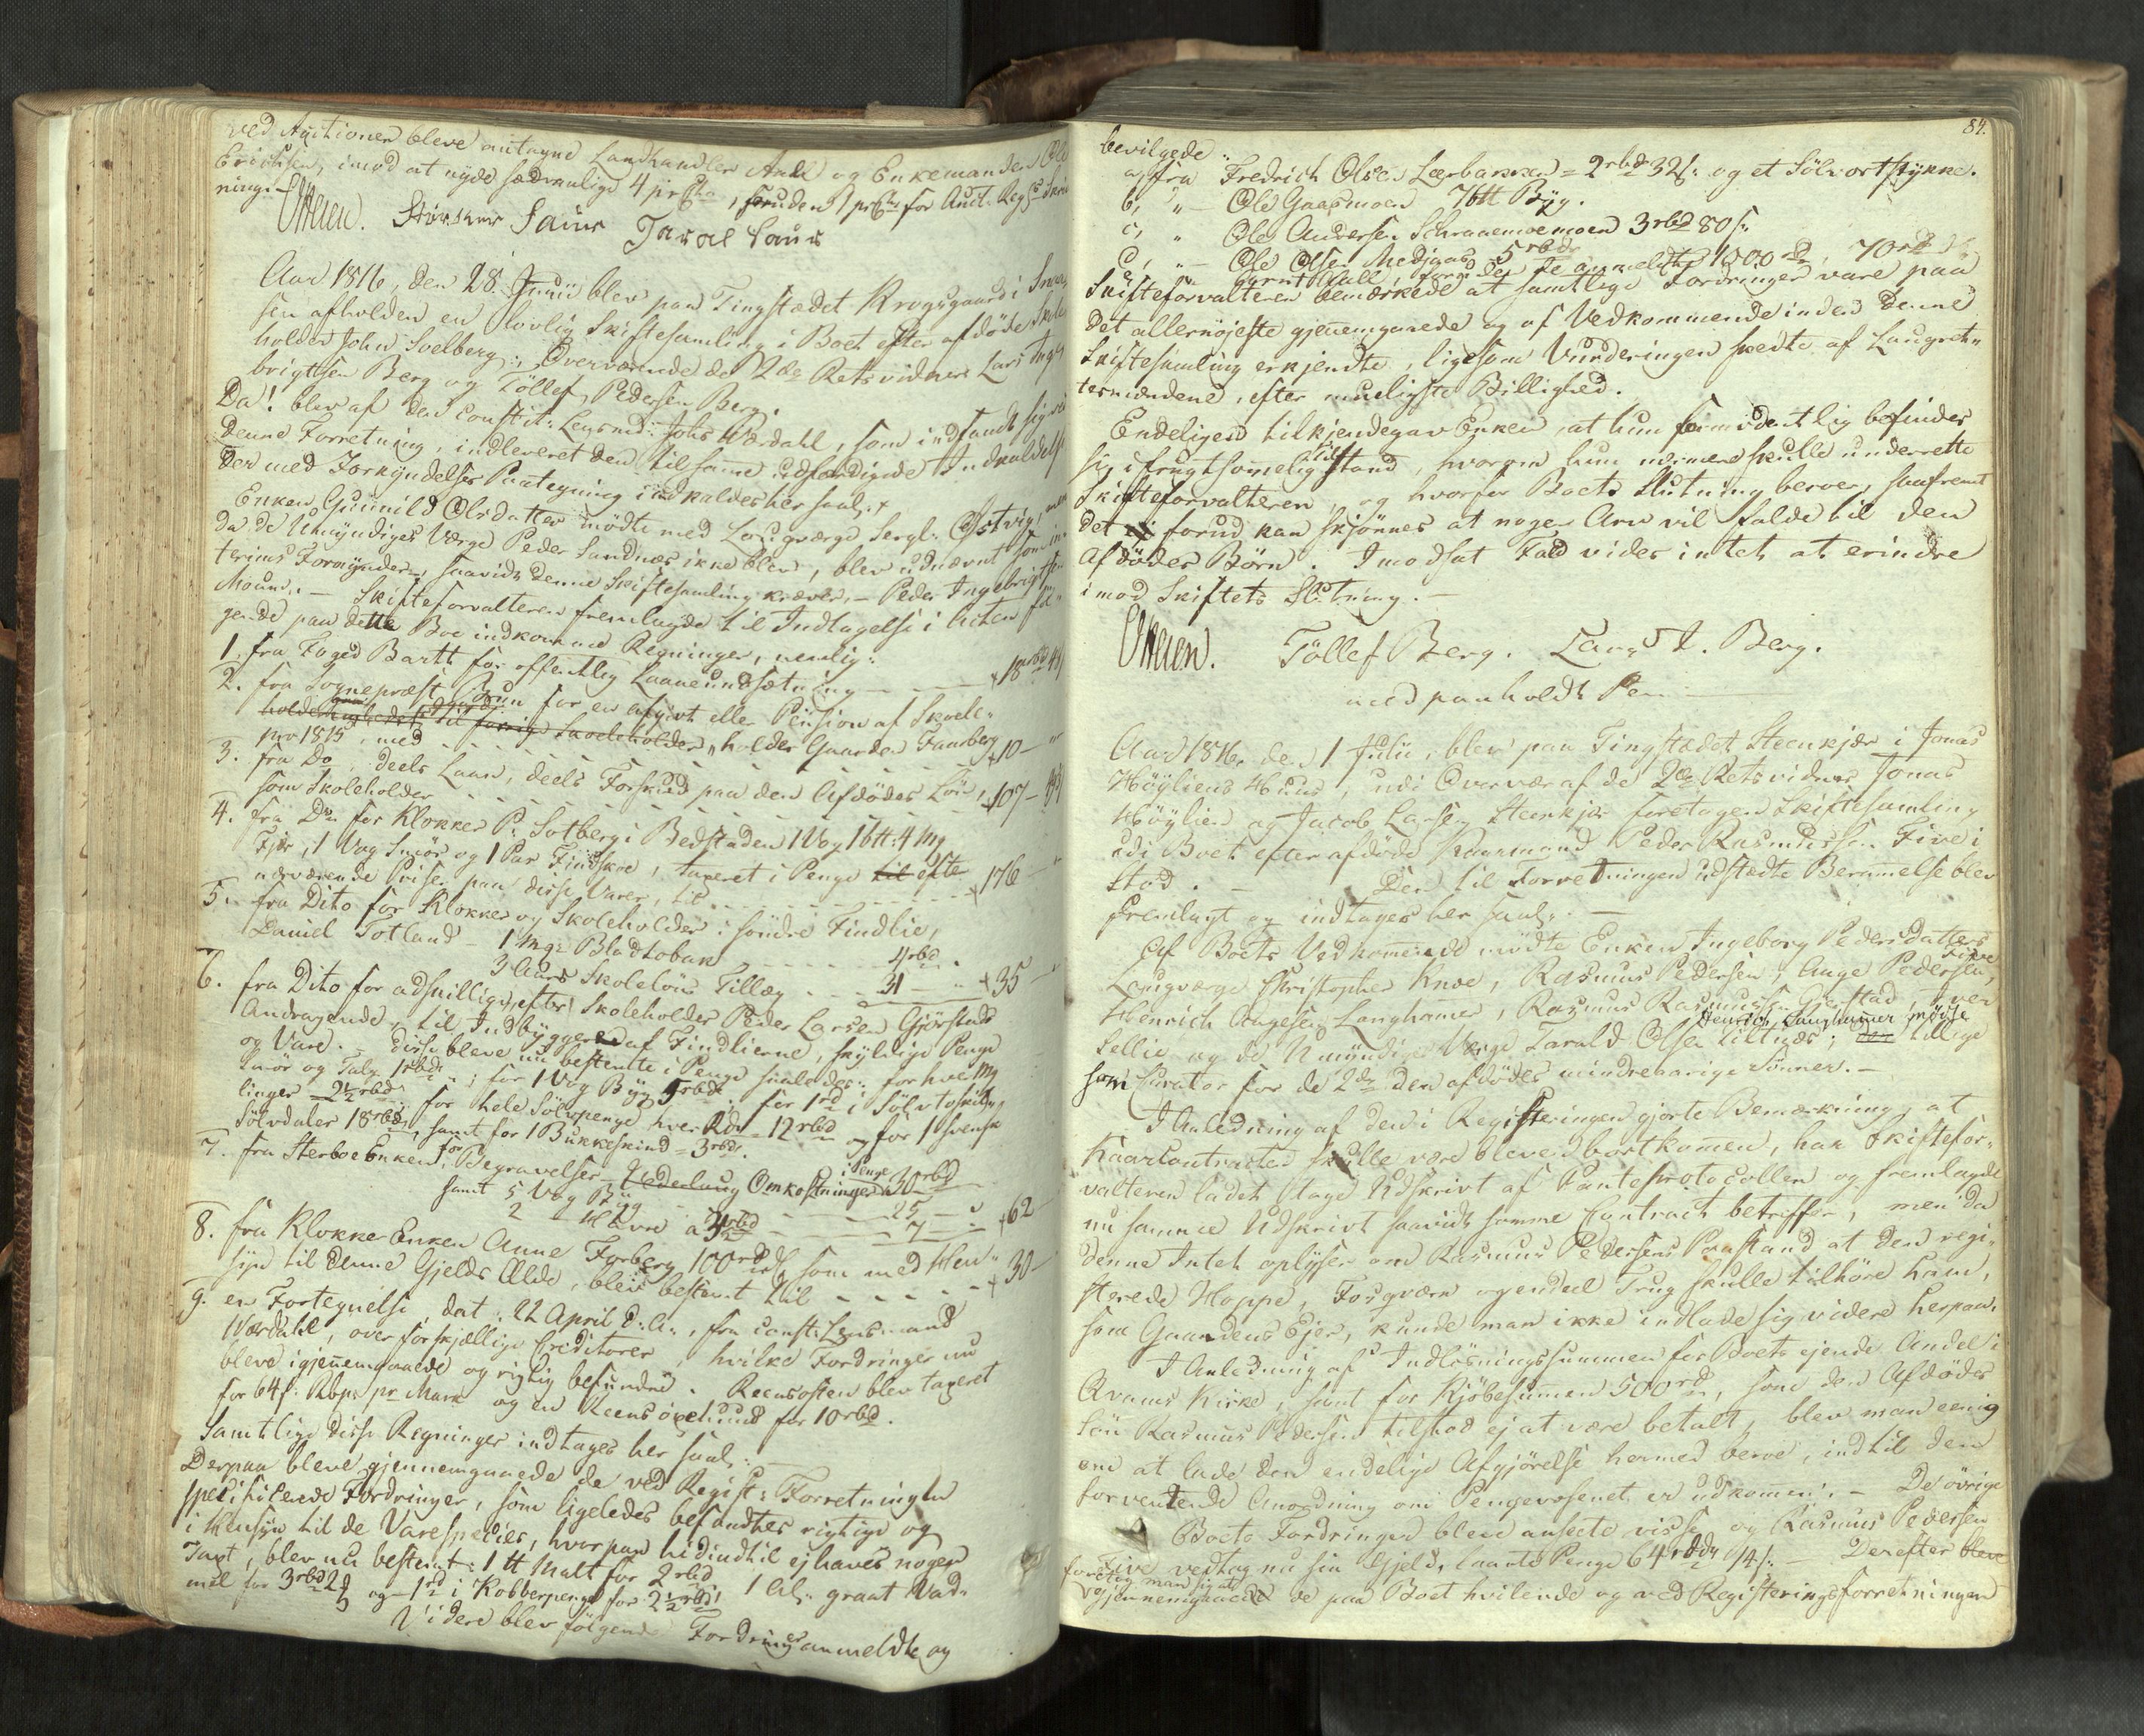 ved Auctionen bleve antagne Landhandler Aall og Enkemanden Ole
Erichsen, imod at nyde sædvanlige 4 prCto, foruden 1 prCto for Auct. Regs Skriv
ning.
Steen. Størcker Saur Taral Saur
Aar 1816, den 28. Junii blev paa Tingstædet Krogsgaard i Snaa
sen afholden en lovlig Skiftesamling i Boet efter afdöde Skole
holder John Solberg; Overværende de 2de Retsvidner Lars Inge
brigtsen Berg og Töllef Pedersen Berg.
Da! blev af den constit: Lensmd: Johs Værdahl, som indfandt sig ved
denne Forretning, indleveret den tilsamme udfærdigede Indkaldelse
der med Forkyndelses Paategning indkaldes her saal: +
Enken Gunnild Olsdatter mödte med Laugværge Sergt: Østvig, men
da de Umyndiges Værge Peder Sandnæs ikke blev, blev udnævnt som in
terims Formynder, saavidt denne Skiftesamling kræver, - Peder Ingebrigtsen
Mouum. - Skifteforvalteren fremlagde til Indtagelse i Acten föl
gende paa dette Boe indkomne Regninger, nemlig:
1. fra Foged Barth for offentlig Laaneundsætning - - - + 18 rbd 48
2. fra Sognepræst Brun for en afgivt elle Pension af Skole-
holder Gaarden Faarberg
pro 1815, med - - - - + 10 - "
3. fra Do, deels Laan, deels Forskud paa den Afdödes Lön,
som Skoleholder - - - - + 107 -
4. fra Do for Klokker P. Solberg i Bedstaden 1 Vog 1 btt: 4 Mg
Fjær, 1 Vog Smör og 1 Par Findskoe, taxeret i Penge til efter
nærværende Priser paa disse Varer, til - - - + 176 "
5. fra Dito for Klokker og Skoleholder i söndre Findlie,
Daniel Totland - 1 Mg: Bladtobak - - - 4 rbd.
3 Aars Skolelöns Tillæg - - - 31 - " + 35 - "
6. fra Dito for adskillige, efter Skoleholder Peder Larsen Gjörstads
Andragende, til Indbyggerne af Findlierne, skyldige Penge
og Vare. - disse bleve nu bestemte i Penge saaledes: for hver Mg
Smör og Talg 1 rbd; for 1 Vog Byg 5 rbd. for 1 rd i Sölvtoskil-
linger 2½ rbd. for hele Sölvpenge hver Rdr 12 rbd og for 1 svensk
Sölvdaler 18 rbd, samt for 1 Bukkeskind = 3 rbd.
7. fra Sterboe Enken, for Begravelses Omkostninger i Penge 30 rbd
samt 5 Vog Byg - - - 25 - "
2 - Havre a 3½ rbd - - - 7 - + 62 -
8. fra Klokker Enken Anne Forberg 100 rd som med Hen-
syn til denne Gjelds Ælde, blev bestemt til - - - + 30 -
9. en Fortegnelse dat: 22 April d: A:, fra const: Lensmand
Værdahl, over forskjellige Creditorer, hvilke Fordringer nu
bleve igjennemgaaede og rigtig befundne. Reensosten blev taxeret
for 64 s: Rbp: pr Mark og en Reensoxehuud for 10 rbd.
Samtlige disse Regninger indtages her saal: -
Derpaa bleve gjennemgaaede de ved Regist: Forretningen
specificerede Fordringer, som ligeledes befandtes rigtige og
i Hensyn til de Varespecies, hvorpaa hidindtil ej haves nogen
Taxt, blev nu bestemt: 1 tt Malt for 2 rbd 1 Al: graat Vad-
mel for 3 rbd 2 ß og 1 rd i Kobberpenge for 2½ rbd.
Videre blev fölgende Fordringer anmeldte og
84.
bevilgede
a, fra Fredrich Olsen Lærbakken = 2 rbd 32 s: og et Sölvortstykke.
b, " - Ole Gaasmoen 7 btt Byg.
c, " Ole Andersen Schraaemoemoen 3 rbd 80 s:
d, " - Ole Olsen Medjaas 5 rbdr
e, " Bernt Wall, for de anmeldte 1000 rd, 70 rd
Skifteforvalteren bemærkede at samtlige Fordringer vare paa
det allernöjeste gjennemgaaede og af Vedkommende inden denne
Skiftesamling erkjendte, ligesom Vurderingen skeedte af Laugrets-
tesmændene, efter mueligste Billighed.
Endeligen tilkjendegav Enken, at hun formodentlig befinder
sig i frugtsommelig Tilstand, hvorom hun nærmere skulle underrette
Skifteforvalteren, og hvorfor Boets Slutning beroer, saafremt
det ej forud kan skjönnes at nogen Arv vil falde til den
Afdödes Börn. I modsat Fald vides intet at erindre
imod Skiftets Slutning. -
Steen. Töllef Berg. Lars I. Berg.
med paaholdt Pen
Aar 1816, den 1 Julii, blev paa Tingstædet Steenkjær i Jonas
Höyliens Huus, udi Overvær af de 2de Retsvidner Jonas
Höylien og Jacob Larsen Steenkjær foretagen Skiftesamling
udi Boet efter afdöde Kaarmand Peder Rasmussen Five i
Stod. - Den til Forretningen udstædte Berammelse blev
fremlagt og indtages her saal: -
Af Boets Vedkommende mödte Enken Ingeborg Pedersdatters
Laugværge Christopher Knoe, Rasmus Pedersen Five, Aage Pedersen,
Henrich Aagesen Langhammer, Rasmus Rasmussen Gjerstad, Iver
Sellie og de Umyndiges Værge Tarald Olsen Lilnæs; Henrich Langhammer mödte tillige
som Curator for de 2de den afdödes mindreaarige Sönner. -
I Anledning af den i Registeringen gjorte Bemærkning, at
Kaarcontracten skulle være bleven bortkommen, har Skiftefor-
valteren ladet tage Udskrivt af Panteprotocollen og fremlagde
nu samme Udskrivt saavidt samme Contract betreffer, men da
denne Intet oplyser om Rasmus Pedersens Paastand at den regi-
sterede Hoppe, Fosqværn og endeel Trug skulle tilhöre ham,
som Gaardens Ejer, kunde man ikke indlade sig videre herpaa.
I Anledning af Indlösningssummen for Boets ejende Andel i
Qvams Kirke, samt for Kjöbesummen 500 rd, som den Afdödes
Sön Rasmus Pedersen tilstod ej at være betalt, blev man eenig
om at lade den endelige Afgjörelse hermed beroe, indtil den
forventende Anordning om Pengevæsenet er udkommen. - De övrige
Boets Fordringer bleve ansete visse og Rasmus Pedersen
Five vedtog nu sin Gjeld, laante Penge 64 rbdr 14 s: - Derefter bleve
foretog man sig at
gjennemgaae de paa Boet hvilende og ved Registeringsforretningen